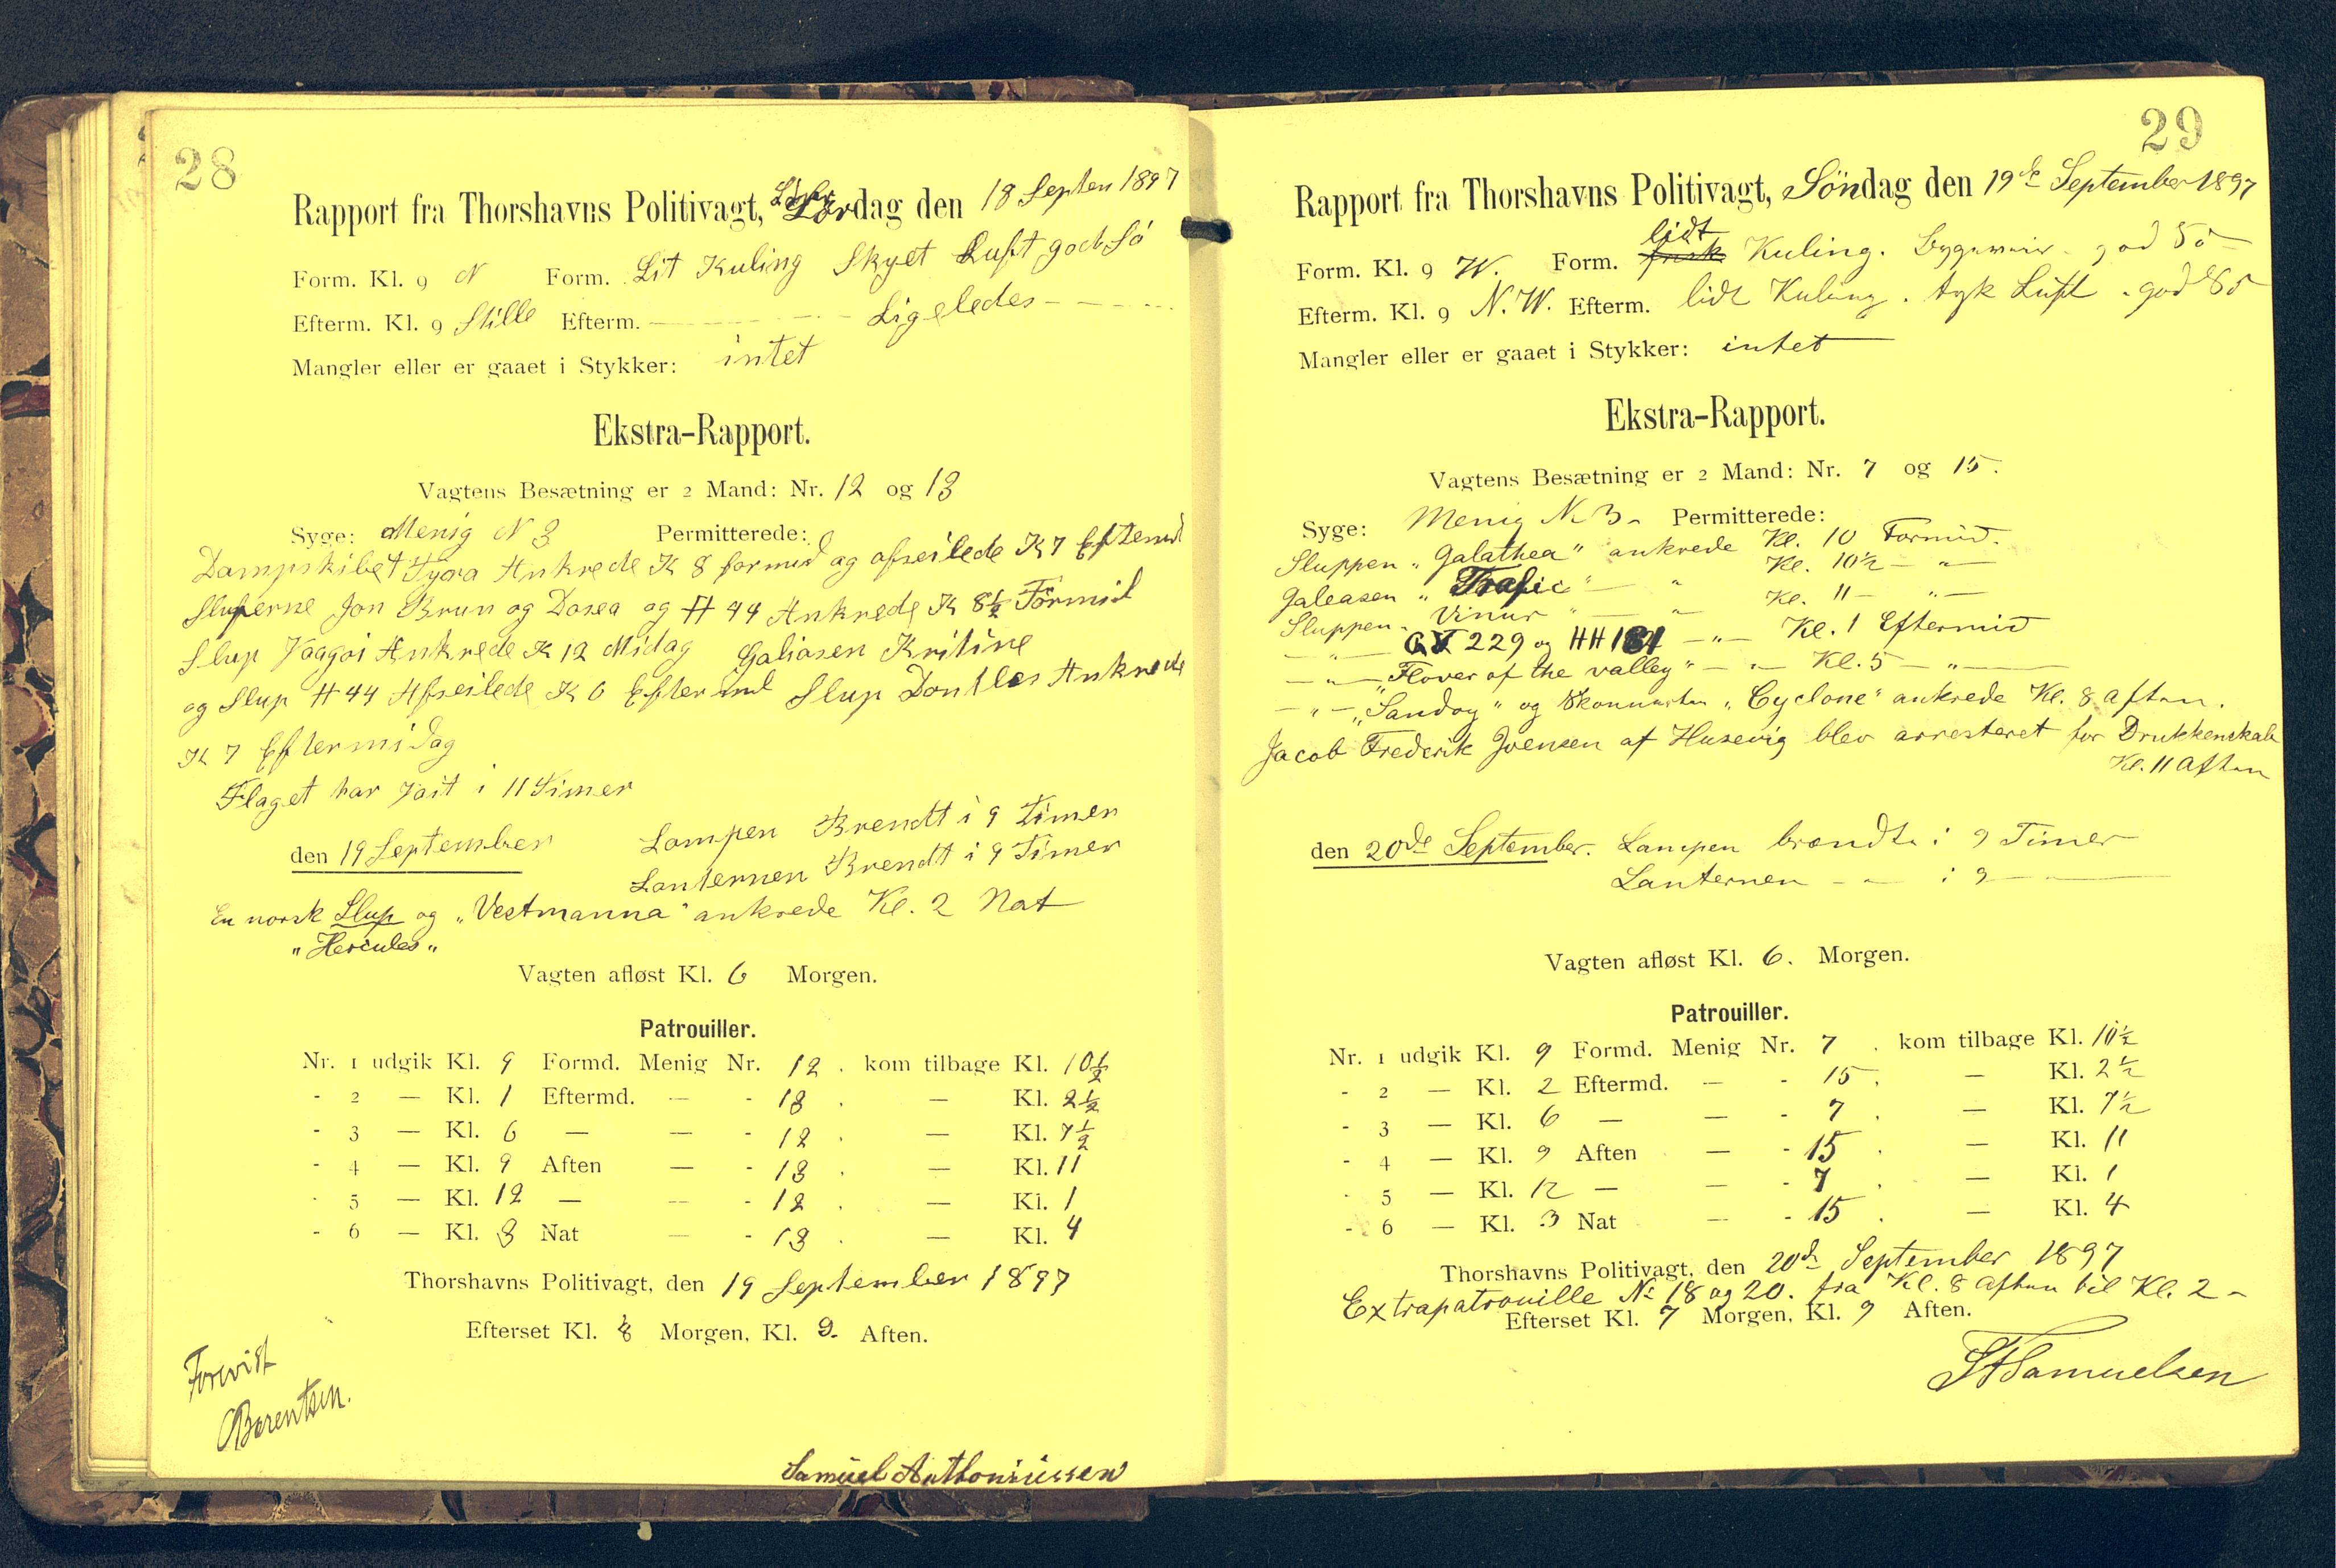 28
Rapport fra Thorshavns Politivagt, Lørdag den 18 Septen 1897
Form. Kl. 9 N Form. Lit Kuling Skyet Luft god Sö
Efterm. Kl. 9 Stille Efterm. — Ligeledes —
Mangler eller er gaaet i Stykker: intet
Ekstra-Rapport.
Vagtens Besætning er 2 Mand: Nr. 12 og 13
Syge: Menig N 3 Permitterede:
Dampskibet Tyra Ankrede K 8 formid og afseilede K 7 Eftemd
Sluperne Jon Brun og Dosea og H 44 Ankrede K 8½ Formid
Slup Vaagoi Ankrede K 12 Midag Galiasen Kritine
og Slup H 44 Afseilede K 6 Eftermd Slup Dontles Ankrede
K 7 Eftermidag
Flaget har Vait i 11 Timer
den 19 September Lampen Brendt i 9 Timer
Lanternen Brendt i 9 Timer
En norsk Slup og „Vestmanna" ankrede Kl. 2 Nat
„Hercules„
Vagten afløst Kl. 6 Morgen.
Patrouiller.
Nr. 1 udgik Kl. 9 Formd. Menig Nr. 12 . kom tilbage Kl. 10½
- 2 — Kl. 1 Eftermd. — - 13 . — Kl. 2½
- 3 — Kl. 6 — — - 12 . — Kl. 7½
- 4 — Kl. 9 Aften — - 13 . — Kl. 11
- 5 — Kl. 12 — — - 12 . — Kl. 1
- 6 — Kl. 3 Nat — - 13 . — Kl. 4
Thorshavns Politivagt, den 19 September 1897
Efterset Kl. 8 Morgen, Kl. 9. Aften.
Forevist
Berentsen.
Samuel Anthoniussen
29
Rapport fra Thorshavns Politivagt, Söndag den 19de September 1897
lidt
Form. Kl. 9 W. Form. frisk Kuling. Bygeveir. god Sö
Efterm. Kl. 9 N.W. Efterm. lidt Kuling. tyk Luft. god Sö
Mangler eller er gaaet i Stykker: intet
Ekstra-Rapport.
Vagtens Besætning er 2 Mand: Nr. 7 og 15.
Syge: Menig N. 3. Permitterede:
Sluppen „Galathea" ankrede Kl. 10 Formid.
Galeasen „Trafic" — „ Kl. 10½ — „ —
Sluppen „Vinur" — „ — Kl. 11 — „ —
— „ — 229 og HH181 — „ — Kl. 1 Eftermid
— „ — „Flover of the valley" — „ — Kl. 5 — „ —
— „ — „Sandoy" og Skonnerten „Cyclone" ankrede Kl. 8 Aften.
Jacob Frederik Joensen af Husevig blev arresteret for Drukkenskab
Kl. 11 Aften
den 20de September. Lampen brændte i 9 Timer
Lanternen — „ — i 9 —
Vagten afløst Kl. 6. Morgen.
Patrouiller.
Nr. 1 udgik Kl. 9 Formd. Menig Nr. 7 . kom tilbage Kl. 10½
- 2 — Kl. 2 Eftermd. — - 15 . — Kl. 2½
- 3 — Kl. 6 — — - 7 . — Kl. 7½
- 4 — Kl. 9 Aften — - 15 . — Kl. 11
- 5 — Kl. 12 — — - 7 . — Kl. 1
- 6 — Kl. 3 Nat — - 15 . — Kl. 4
Thorshavns Politivagt, den 20de September 1897
Extrapatrouille No 18 og 20. fra Kl. 8 Aften til Kl. 2 –
Efterset Kl. 7 Morgen, Kl. 9 Aften.
Samuelsen